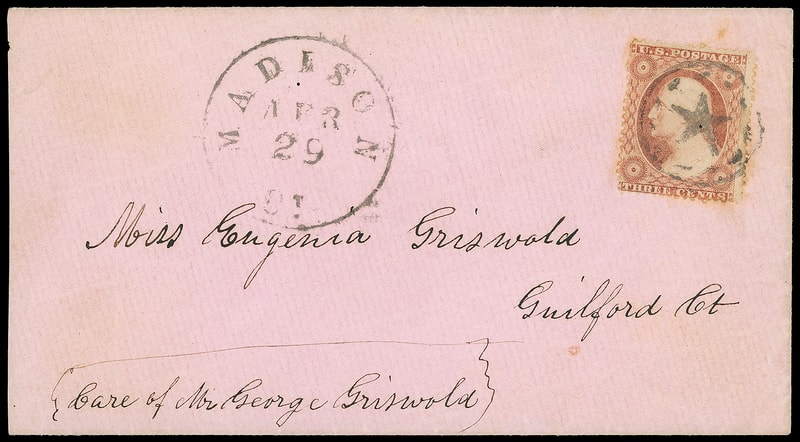 MADISON
APR
29
U.S. POSTAGE
THREE CENTS
Miss Eugenia Griswold
Guilford Ct
Care of Mr George Griswold